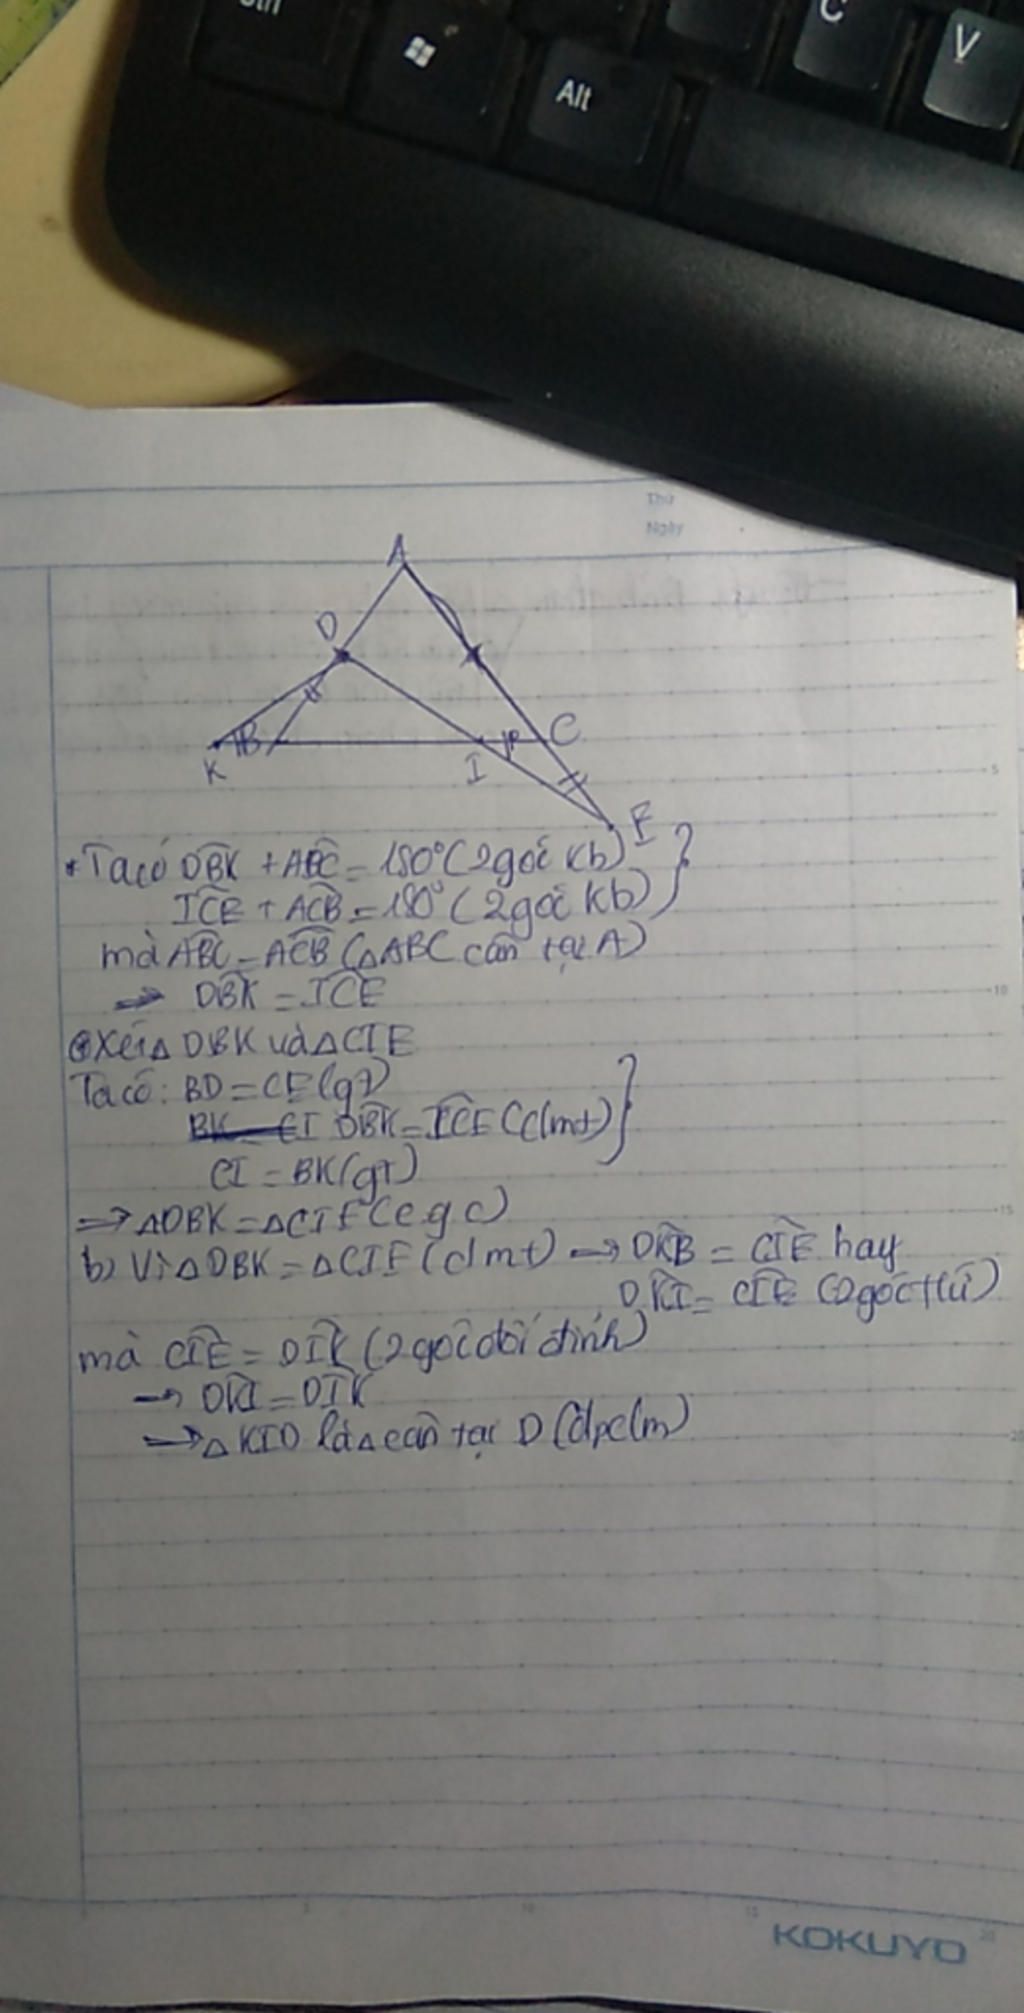 Ctrl
Alt
C
V
Thứ
Ngày
A
D
B
C
K
I
E
5
* Ta có DBK + ABC = 180° (2 góc kb)
ICE + ACB = 180° (2 góc kb)
mà ABC = ACB (△ABC cân tại A)
⇒ DBK = ICE
10
Xét △ DBK và △CIE
Ta có: BD = CE (gt)
BK = CI DBK = ICE (c/mt)
CI = BK (gt)
⇒ △DBK = △CIE (c g c)
15
b) Vì △DBK = △CIE (c/mt) → DKB = CIE hay
DKI = CIE (2 góc t/ư)
mà CIE = DIK (2 góc đối đỉnh)
→ DKI = DIK
→ △ KID là △ cân tại D (đpc/m)
20
5
10
15
20
KOKUYO